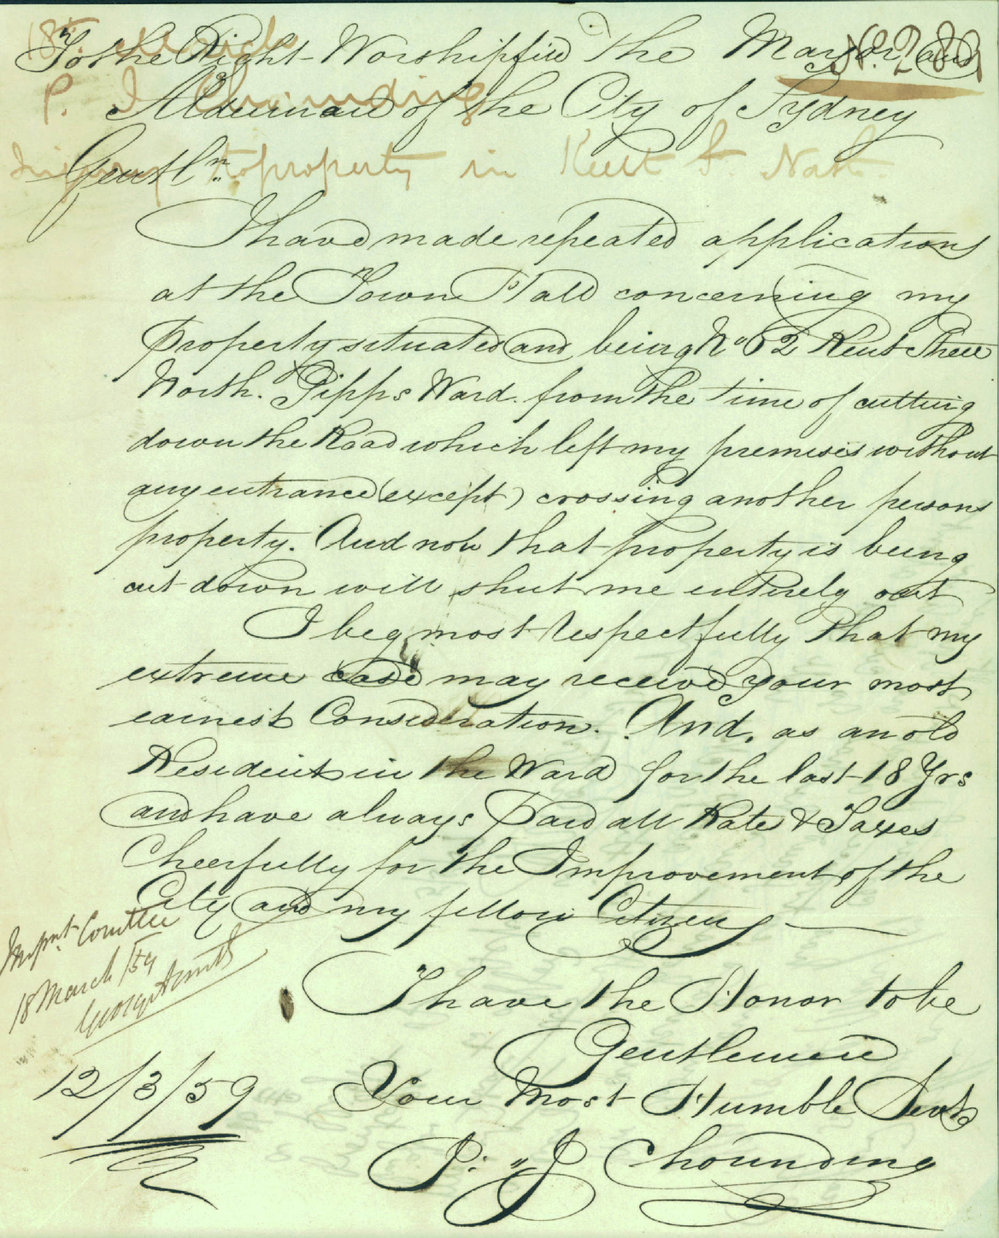 To the Right Worshipful The Mayor and
No. 282
Aldermen of the City of Sydney
P. J. Chounding
Gentln
to property in Kent St. North.
I have made repeated applications
at the Town Hall concerning my
Property situated and being No 62 Kent Street
North. Gipps Ward. from the time of cutting
down the Road which left my premises without
any entrance (except) crossing another persons
property. And now that property is being
cut down will shut me entirely out
I beg most respectfully that my
extreme case may receive your most
earnest Consideration. And, as an old
Resident in the Ward for the last 18 Yrs
and have always Paid all Rates & Taxes
Cheerfully for the Improvement of the
City and my fellow Citizens
Impt. Comttee
18 March /59
I have the Honor to be
Gentlemen
12/3/59
Your Most Humble Servt
P. J Chounding